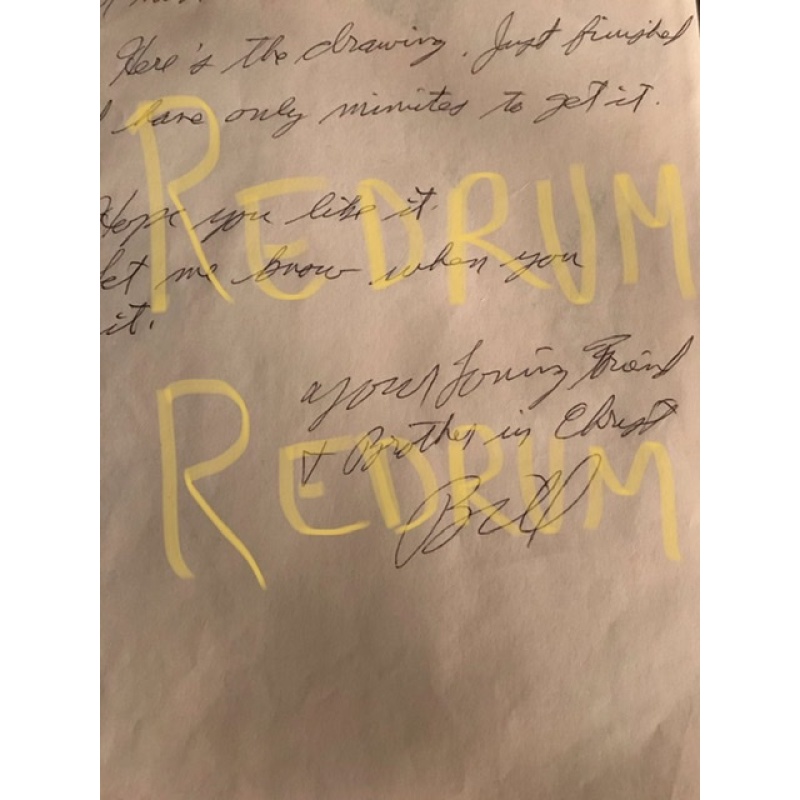 Here's the drawing. Just finished
I have only minutes to get it.
Hope you like it.
let me know when you
it.
your Loving Friend
+ Brother in Christ
Bill
REDRUM
REDRUM